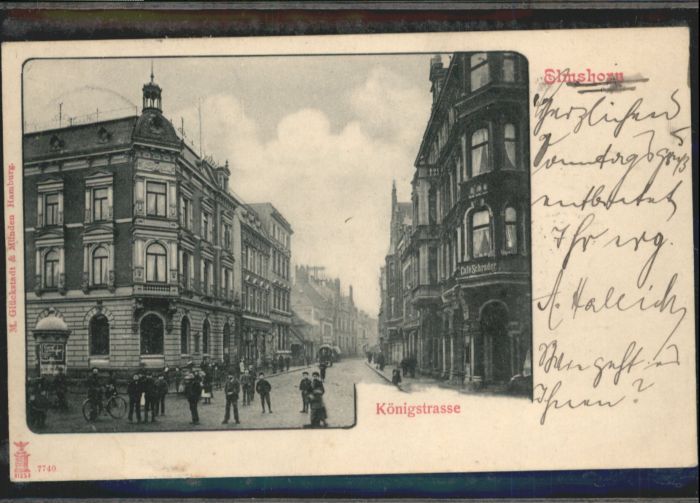 Elmshorn
Herzlichen
Sonntagsgruß
entbietet
Ihr erg.
Wie geht es
Ihnen?
Café Schröder
Königstrasse
M. Glückstadt & Münden Hamburg.
7740